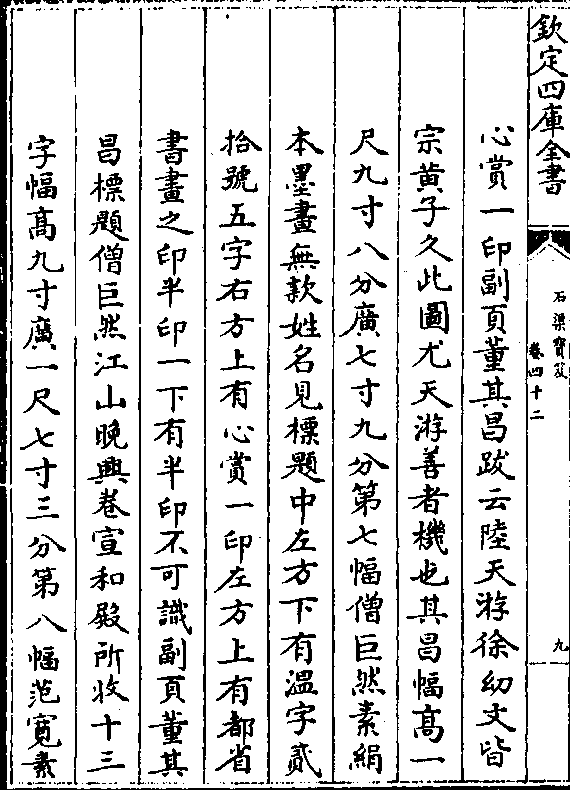 欽定四庫全書
石渠寳笈
卷四十二
九
心賞一印副頁董其昌跋云陸天游徐幼文皆
宗黄子久此圖尤天游善者機也其昌幅髙一
尺九寸八分廣七寸九分第七幅僧巨然素絹
本墨畫無款姓名見標題中左方下有溫字貳
拾號五字右方上有心賞一印左方上有都省
書畫之印半印一下有半印不可識副頁董其
昌標題僧巨然江山晚興卷宣和殿所收十三
字幅髙九寸廣一尺七寸三分第八幅范寛素